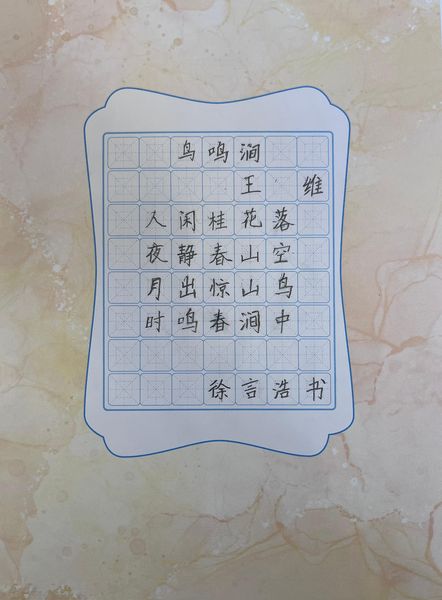 鸟鸣涧
王 维
入闲桂花落
夜静春山空
月出惊山鸟
时鸣春涧中
徐言浩书